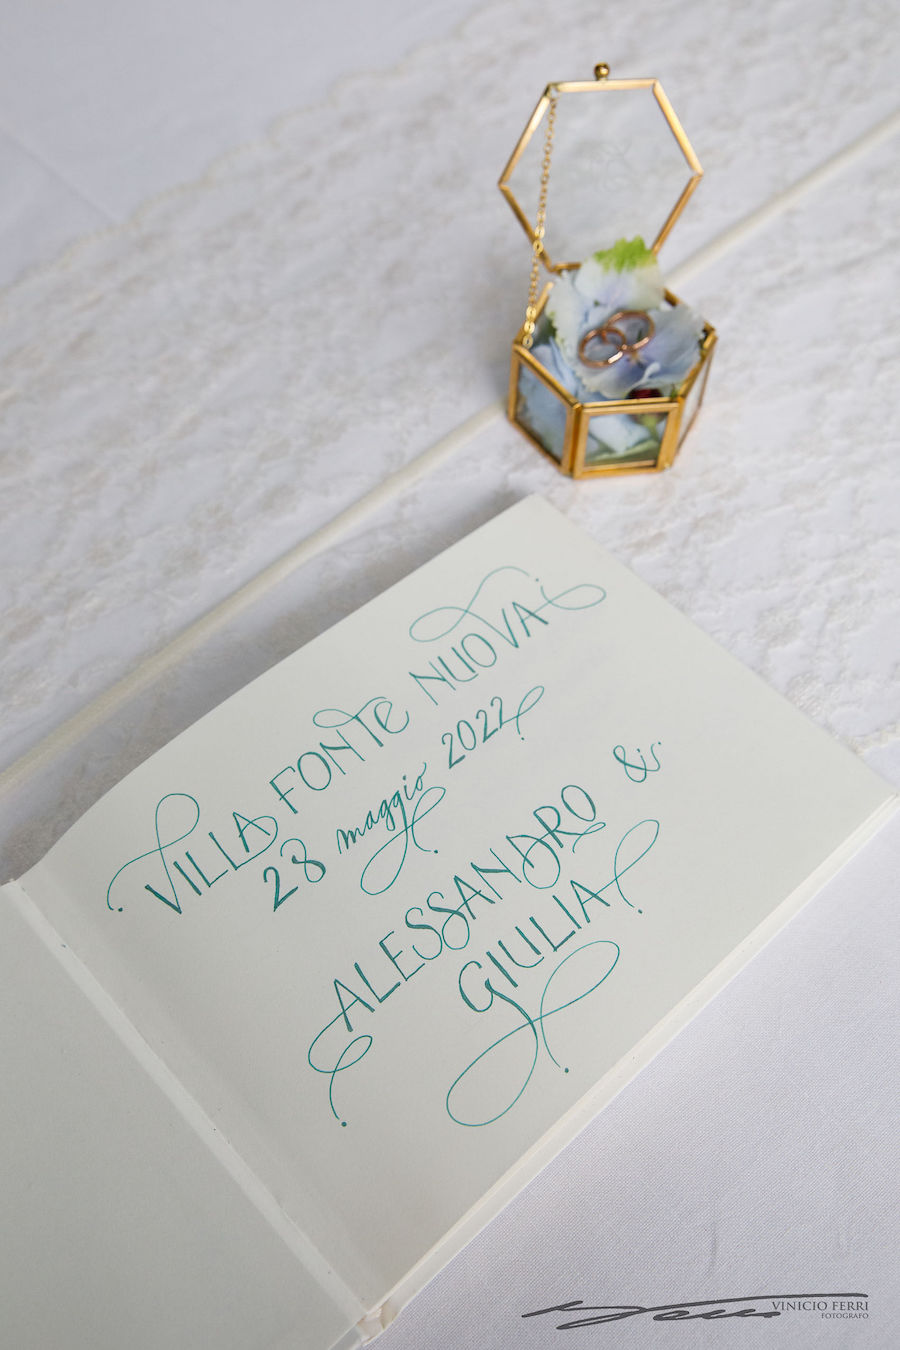 VILLA FONTE NUOVA
28 maggio 2022
ALESSANDRO &
GIULIA
VINICIO FERRI
FOTOGRAFO